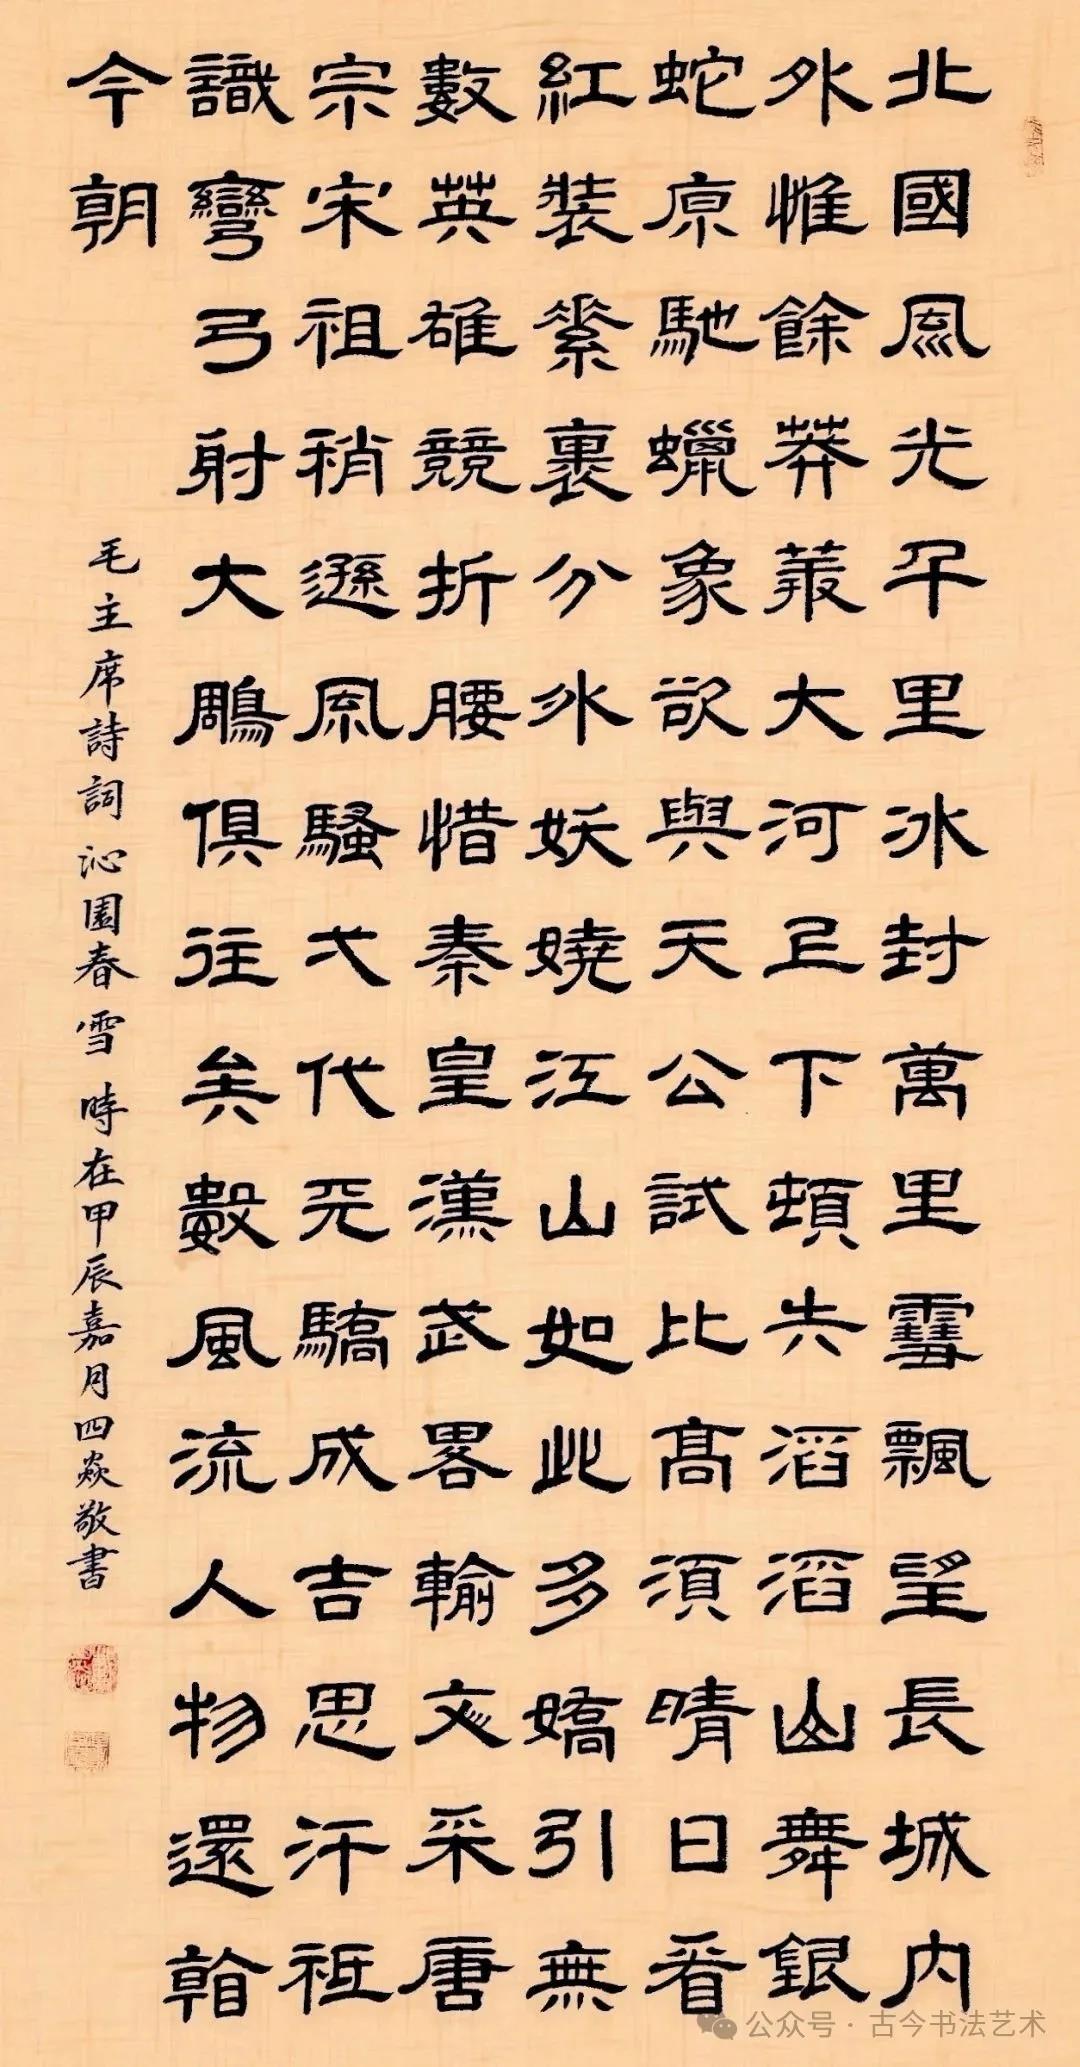 北國風光千里冰封萬里雪飄望長城內
外惟餘莽莽大河上下頓失滔滔山舞銀
蛇原馳蠟象欲與天公試比高須晴日看
紅裝素裹分外妖嬈江山如此多嬌引無
數英雄競折腰惜秦皇漢武畧輸文采唐
宗宋祖稍遜風騷弌代天驕成吉思汗祗
識彎弓射大鵰俱往矣數風流人物還看
今朝
毛主席詩詞沁園春雪 時在甲辰嘉月四焱敬書
公众号·古今书法艺术